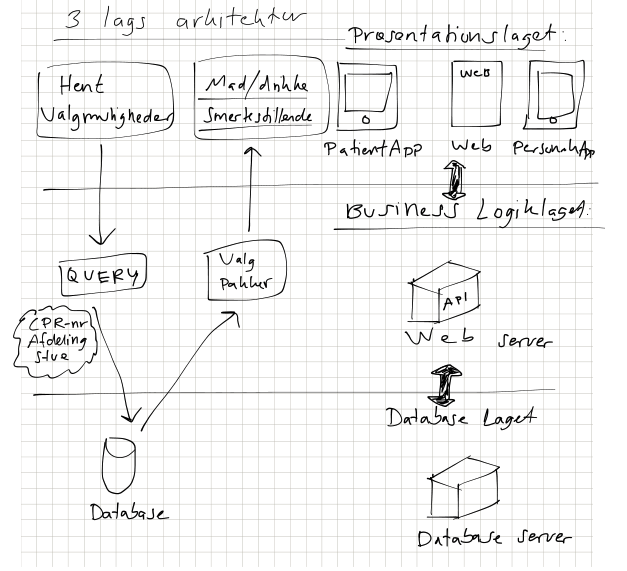 3 lags arkitektur
Præsentationslaget:
Hent
Valgmuligheder
Mad/drikke
Smertestillende
WEB
PatientApp
Web
PersonaleApp
Business Logiklaget:
QUERY
Valg
Pakker
CPR-nr
Afdeling
Stue
API
Web server
Database Laget
Database
Database server